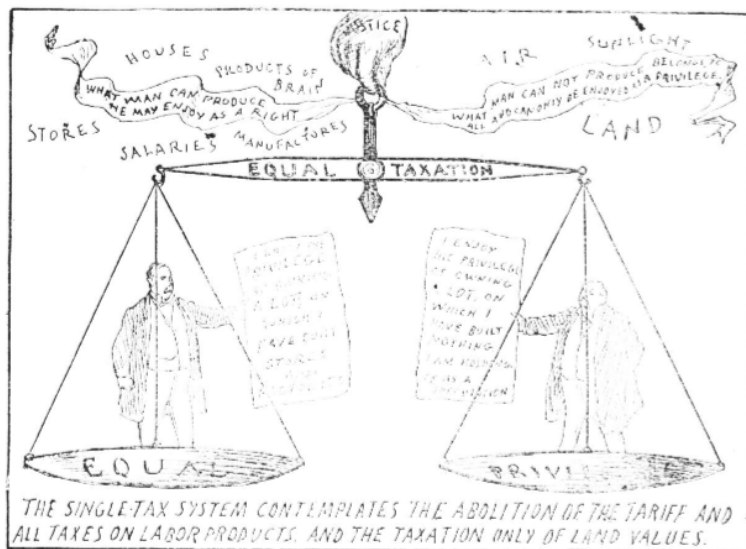 JUSTICE
HOUSES
PRODUCTS OF
BRAIN
WHAT MAN CAN PRODUCE
HE MAY ENJOY AS A RIGHT
STORES
SALARIES
MANUFACTURES
AIR
SUNLIGHT
WHAT MAN CAN NOT PRODUCE BELONGS TO
ALL AND CAN ONLY BE ENJOYED AS A PRIVILEGE.
LAND
EQUAL TAXATION
PRIVILEGE
OF OWNING
A LOT, ON
WHICH I
HAVE BUILT
STORES
I ENJOY
THE PRIVILEGE
OF OWNING
A LOT, ON
WHICH I
HAVE BUILT
NOTHING
I AM HOLDING
IT AS A
SPECULATION
EQUAL
PRIVILEGE
THE SINGLE-TAX SYSTEM CONTEMPLATES THE ABOLITION OF THE TARIFF AND
ALL TAXES ON LABOR PRODUCTS, AND THE TAXATION ONLY OF LAND VALUES.